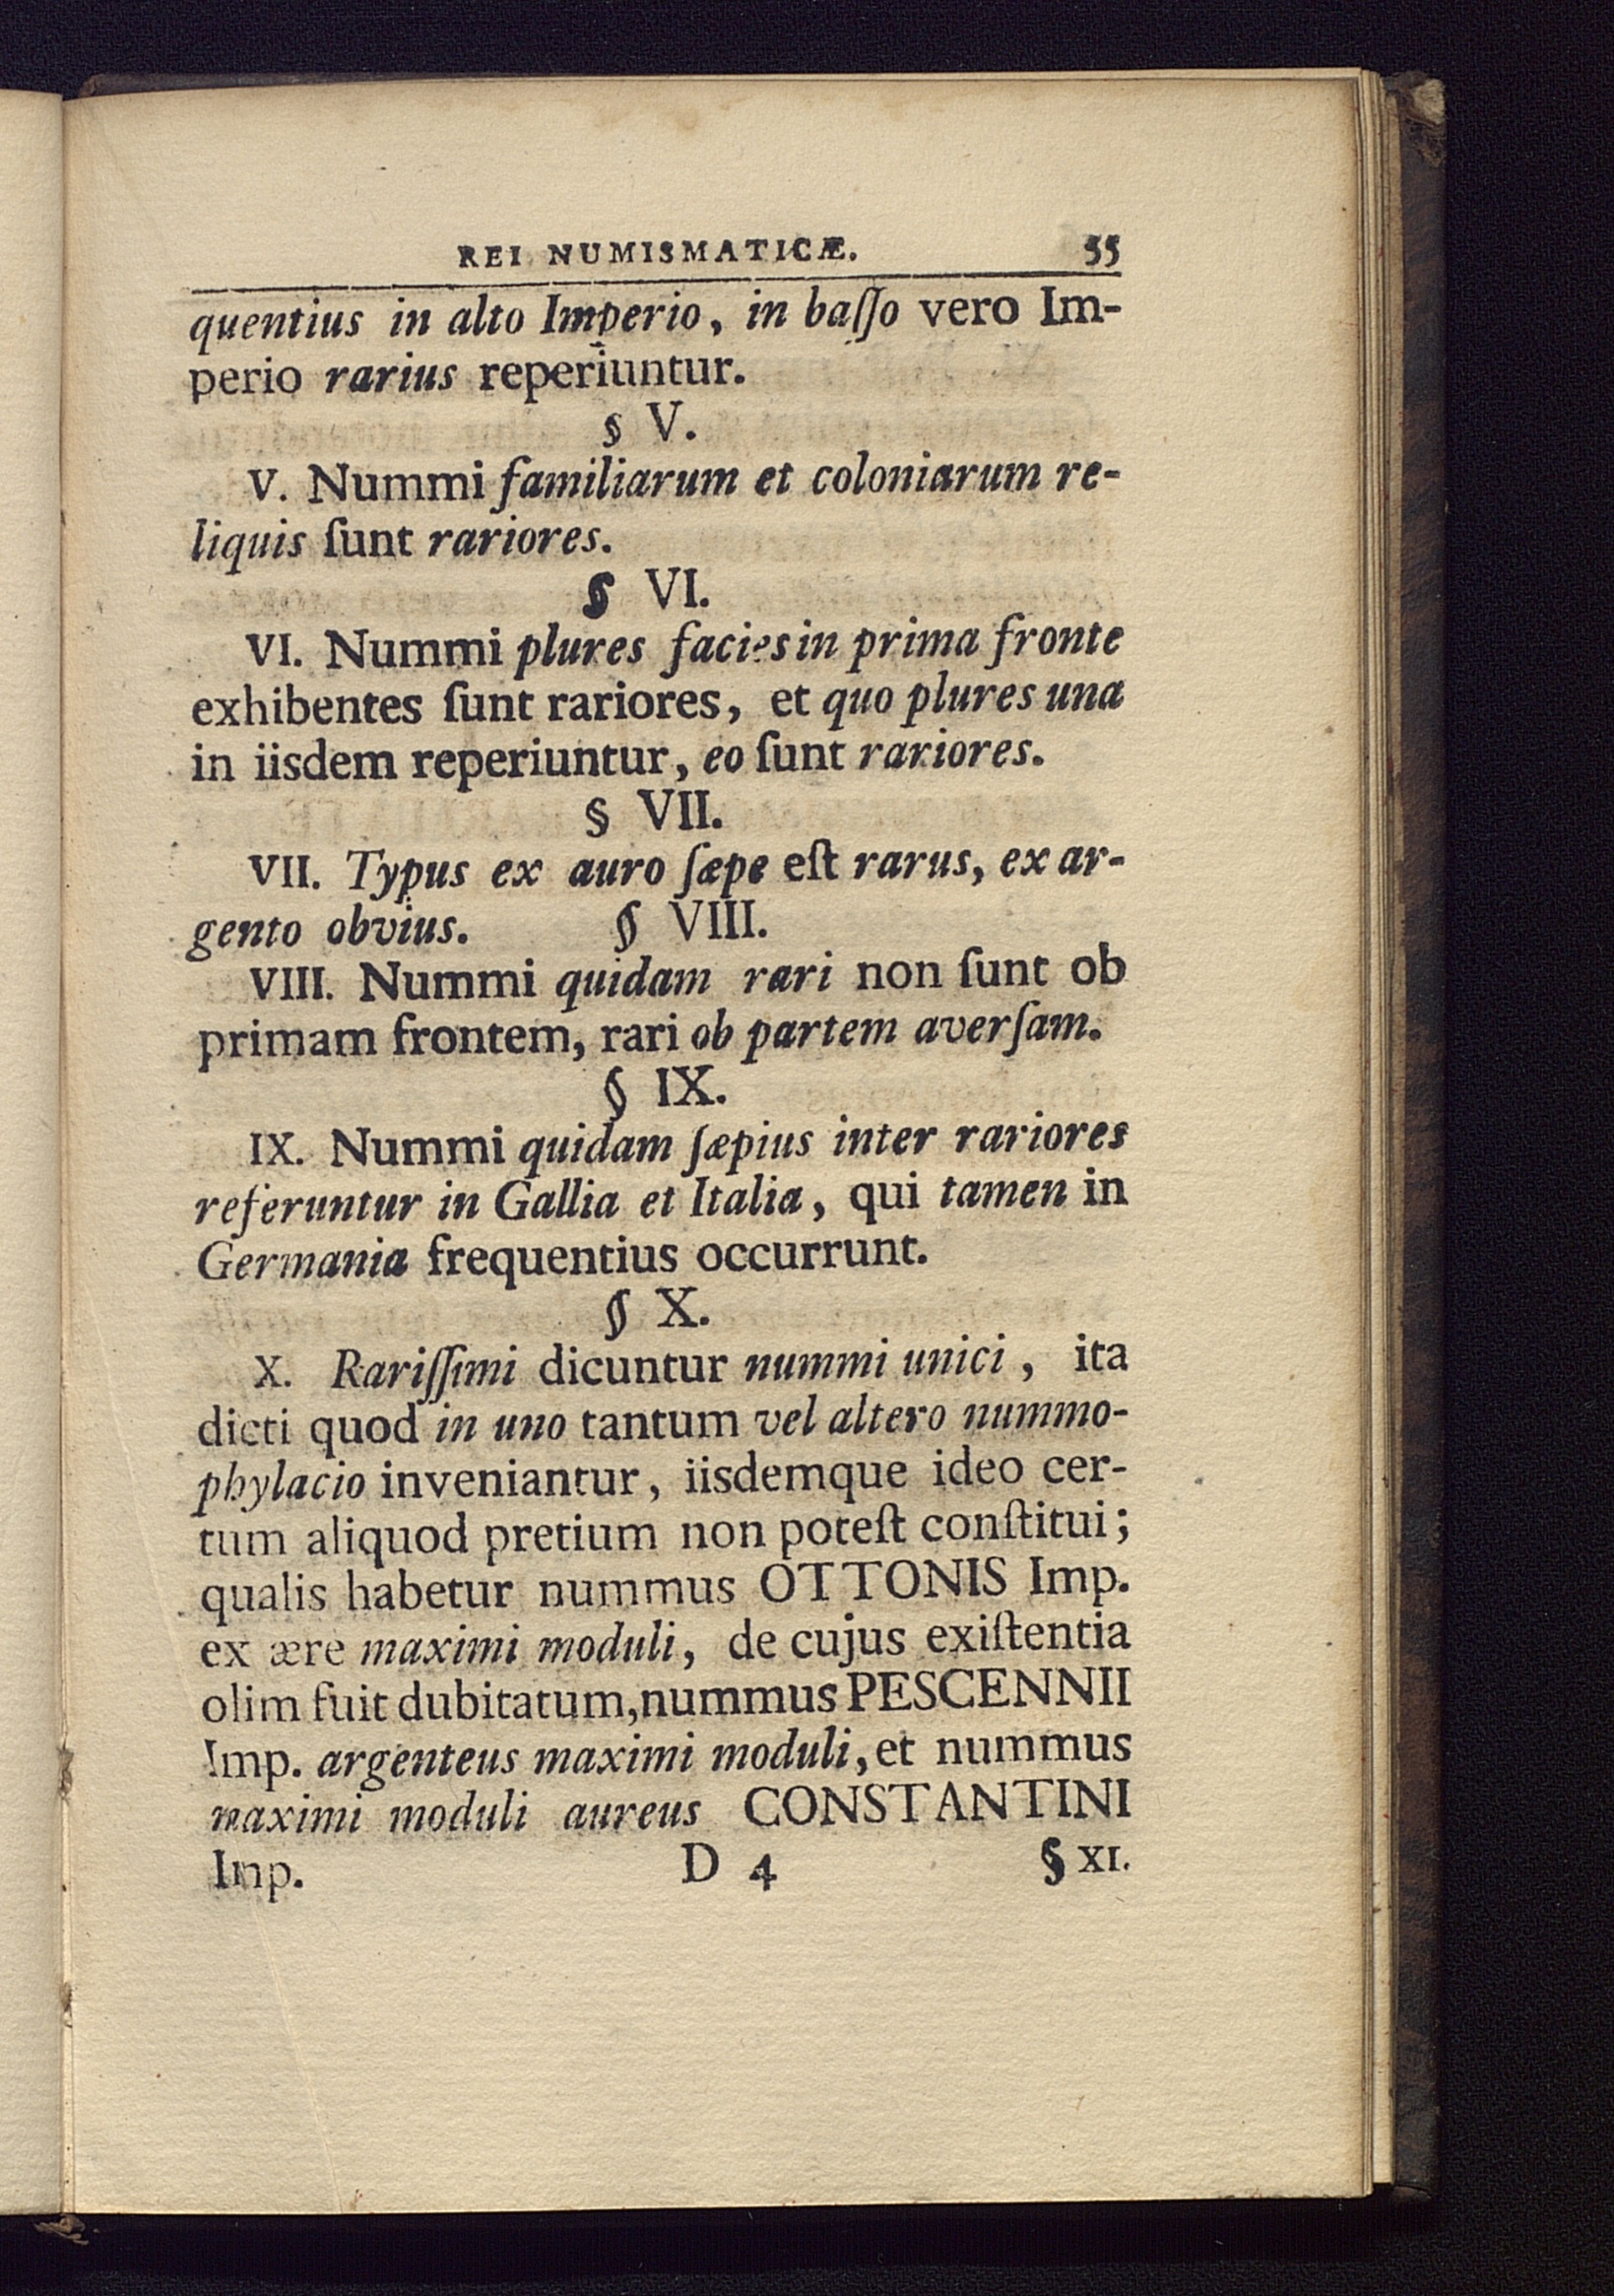 REI NUMISMATICÆ. 55
quentius in alto Imperio, in baſſo vero Im-
perio rarius reperiuntur.
§ V.
V. Nummi familiarum et coloniarum re-
liquis ſunt rariores.
§ VI.
VI. Nummi plures facies in prima fronte
exhibentes ſunt rariores, et quo plures una
in iisdem reperiuntur, eo ſunt rariores.
§ VII.
VII. Typus ex auro ſæpe eſt rarus, ex ar-
gento obvius. § VIII.
VIII. Nummi quidam rari non ſunt ob
primam frontem, rari ob partem averſam.
§ IX.
IX. Nummi quidam ſæpius inter rariores
referuntur in Gallia et Italia, qui tamen in
Germania frequentius occurrunt.
§ X.
X. Rariſſimi dicuntur nummi unici, ita
dicti quod in uno tantum vel altero nummo-
phylacio inveniantur, iisdemque ideo cer-
tum aliquod pretium non poteſt conſtitui;
qualis habetur nummus OTTONIS Imp.
ex ære maximi moduli, de cujus exiſtentia
olim fuit dubitatum, nummus PESCENNII
Imp. argenteus maximi moduli, et nummus
maximi moduli aureus CONSTANTINI
Imp. D 4 § XI.